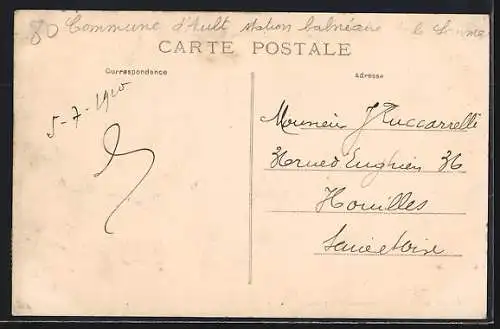 80 Commune d'Ault station balnéaire de la Somme
CARTE POSTALE
Correspondance
Adresse
5-7-1910
Monsieur J Tuccarelli
36 rue d'Enghien 36
Houilles
Seine et Oise